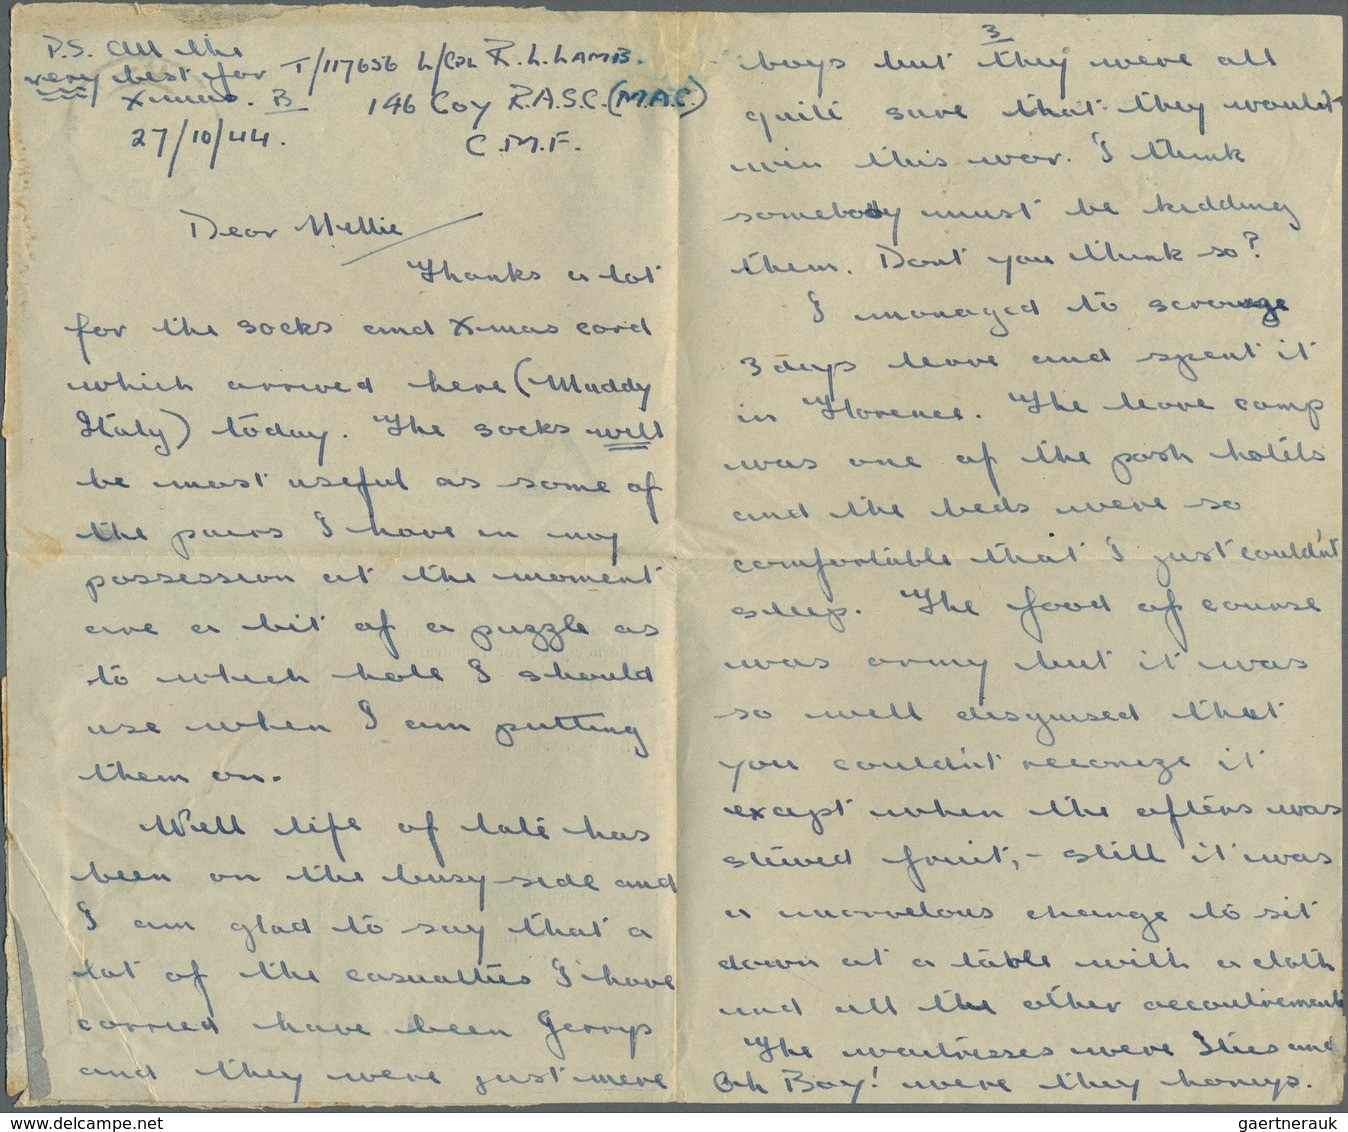 P.S. All the
very best for
Xmas. B
27/10/44.
T/117656 L/Col R.L. LAMB.
146 Coy R.A.S.C. (M.A.C.)
C.M.F.
Dear Nellie
Thanks a lot
for the socks and Xmas card
which arrived here (Muddy
Italy) today. The socks will
be most useful as some of
the pairs I have in my
possession at the moment
are a bit of a puzzle as
to which hole I should
use when I am putting
them on.
Well life of late has
been on the busy side and
I am glad to say that a
lot of the casualties I have
carried have been Gerrys
and they were just mere
3
boys but they were all
quite sure that they would
win this war. I think
somebody must be kidding
them. Dont you think so?
I managed to scrounge
3 days leave and spent it
in Florence. The leave camp
was one of the posh hotels
and the beds were so
comfortable that I just couldn't
sleep. The food of course
was army but it was
so well disguised that
you couldn't reconize it
except when the afters was
stewed fruit, - still it was
a marvelous change to sit
down at a table with a cloth
and all the other accoutrements
The waitresses were Ities and
Oh Boy! were they honeys.
gaertnerauk